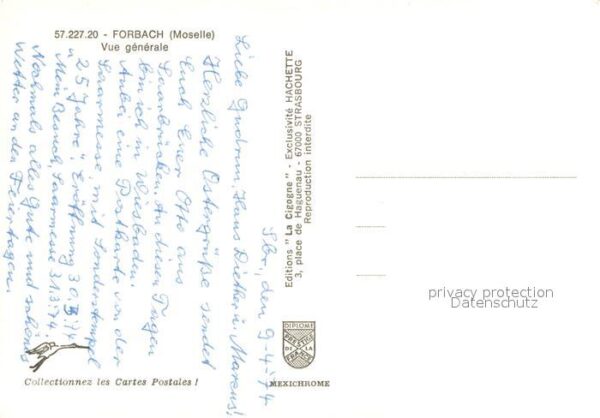 57.227.20 - FORBACH (Moselle)
Vue générale
Sbr, den 9-4-74
Liebe Gudrun, Hans Diether u. Marcus!
Herzliche Ostergrüße sendet
Euch Euer Otto aus
Saarbrücken. An diesen Tagen
bin ich in Wiesbaden.
Anbei eine Postkarte von der
Saarmesse, mit Sonderstempel
"25 Jahre". Eröffnung 30.III.74
Mein Besuch, Saarmesse 31.3.74.
Nochmals alles Gute und schönes
Wetter an den Feiertagen.
Editions "La Cigogne" - Exclusivité HACHETTE
3, place de Haguenau - 67000 STRASBOURG
Reproduction interdite
privacy protection
Datenschutz
DIPLOME
PRESTIGE
DE LA
FRANCE
MEXICHROME
Collectionnez les Cartes Postales !